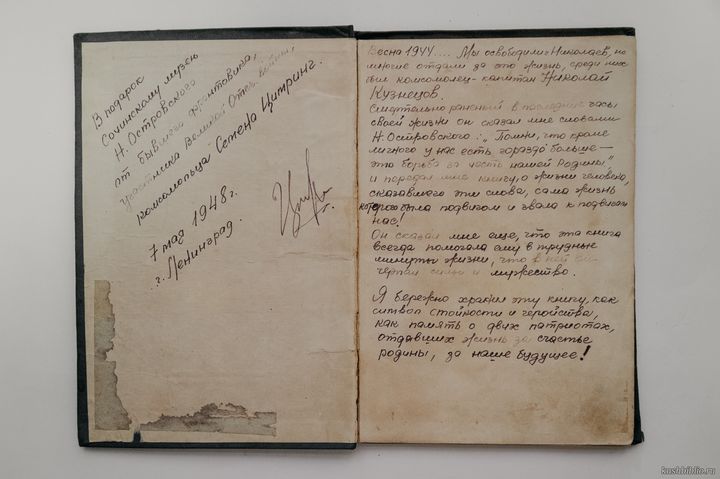 В подарок
Сочинскому музею
Н. Островского
от бывшего фронтовика,
участника Великой Отеч. войны,
комсомольца Семена Цитринг.
7 мая 1948 г.
г. Ленинград.
Весна 1944.... Мы освободили Николаев, но
многие отдали за это жизнь, среди них
был комсомолец-капитан Николай
Кузнецов.
Смертельно раненный в последние часы
своей жизни он сказал мне словами
Н. Островского: „Помни, что кроме
личного у нас есть гораздо больше —
это борьба за честь нашей Родины,"
и передал мне книгу, о жизни человека,
сказавшего эти слова, сама жизнь
которого была подвигом и звала к подвигам
нас!
Он сказал мне еще, что эта книга
всегда помогала ему в трудные
минуты жизни, что в ней он
черпал силы и мужество.
Я бережно хранил эту книгу, как
символ стойкости и геройства,
как память о двух патриотах,
отдавших жизнь за счастье
родины, за наше будущее!
kushbiblio.ru